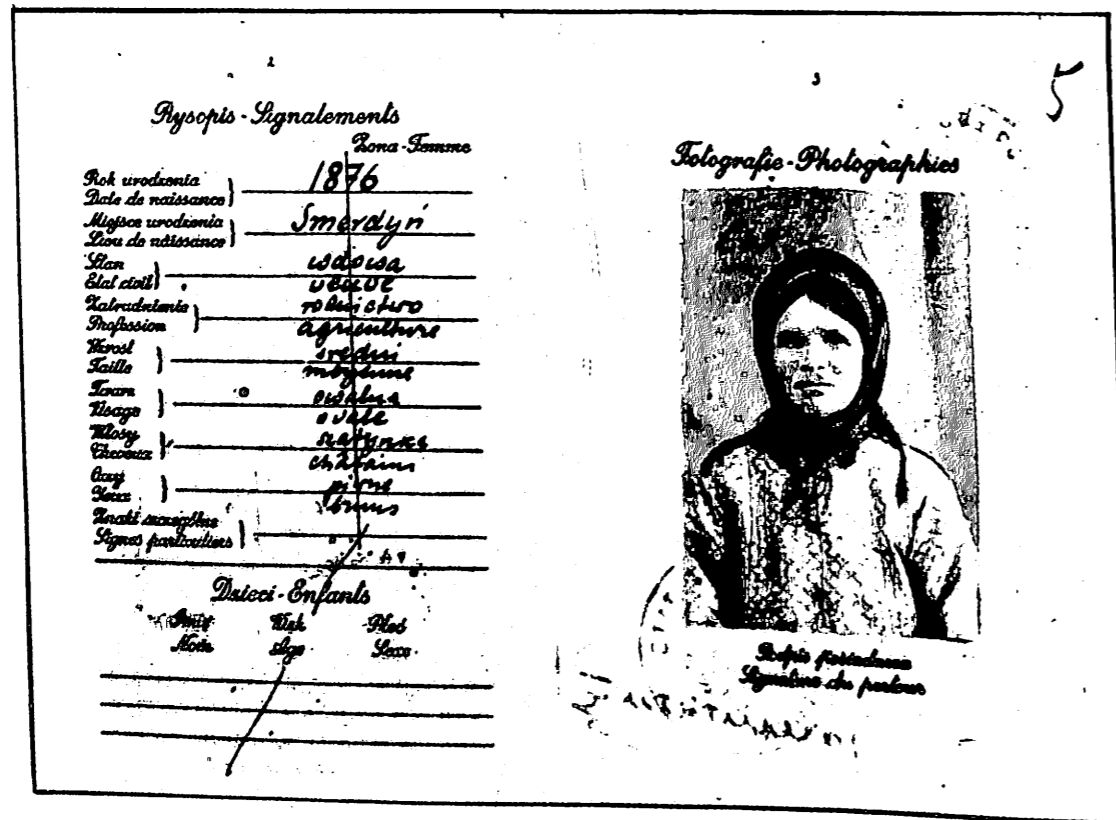 2
Rysopis - Signalements
Żona - Femme
Rok urodzenia
Date de naissance
1876
Miejsce urodzenia
Lieu de naissance
Smerdyń
Stan
Etat civil
wdowa
veuve
Zatrudnienie
Profession
rolnictwo
agriculture
Wzrost
Taille
średni
moyenne
Twarz
Visage
owalna
ovale
Włosy
Cheveux
szatynka
châtains
Oczy
Yeux
piwne
bruns
Znaki szczególne
Signes particuliers
Dzieci - Enfants
Imię
Wiek
Płeć
Nom
Age
Sexe
3
5
Fotografie - Photographies
Podpis posiadacza
Signature du porteur